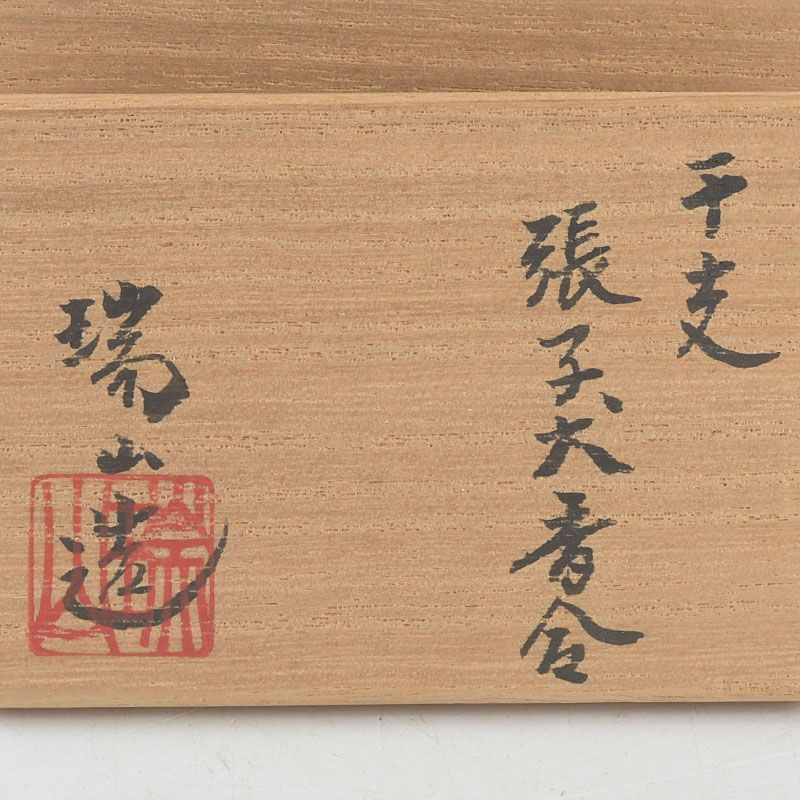 干支
張子犬香合
瑞山造